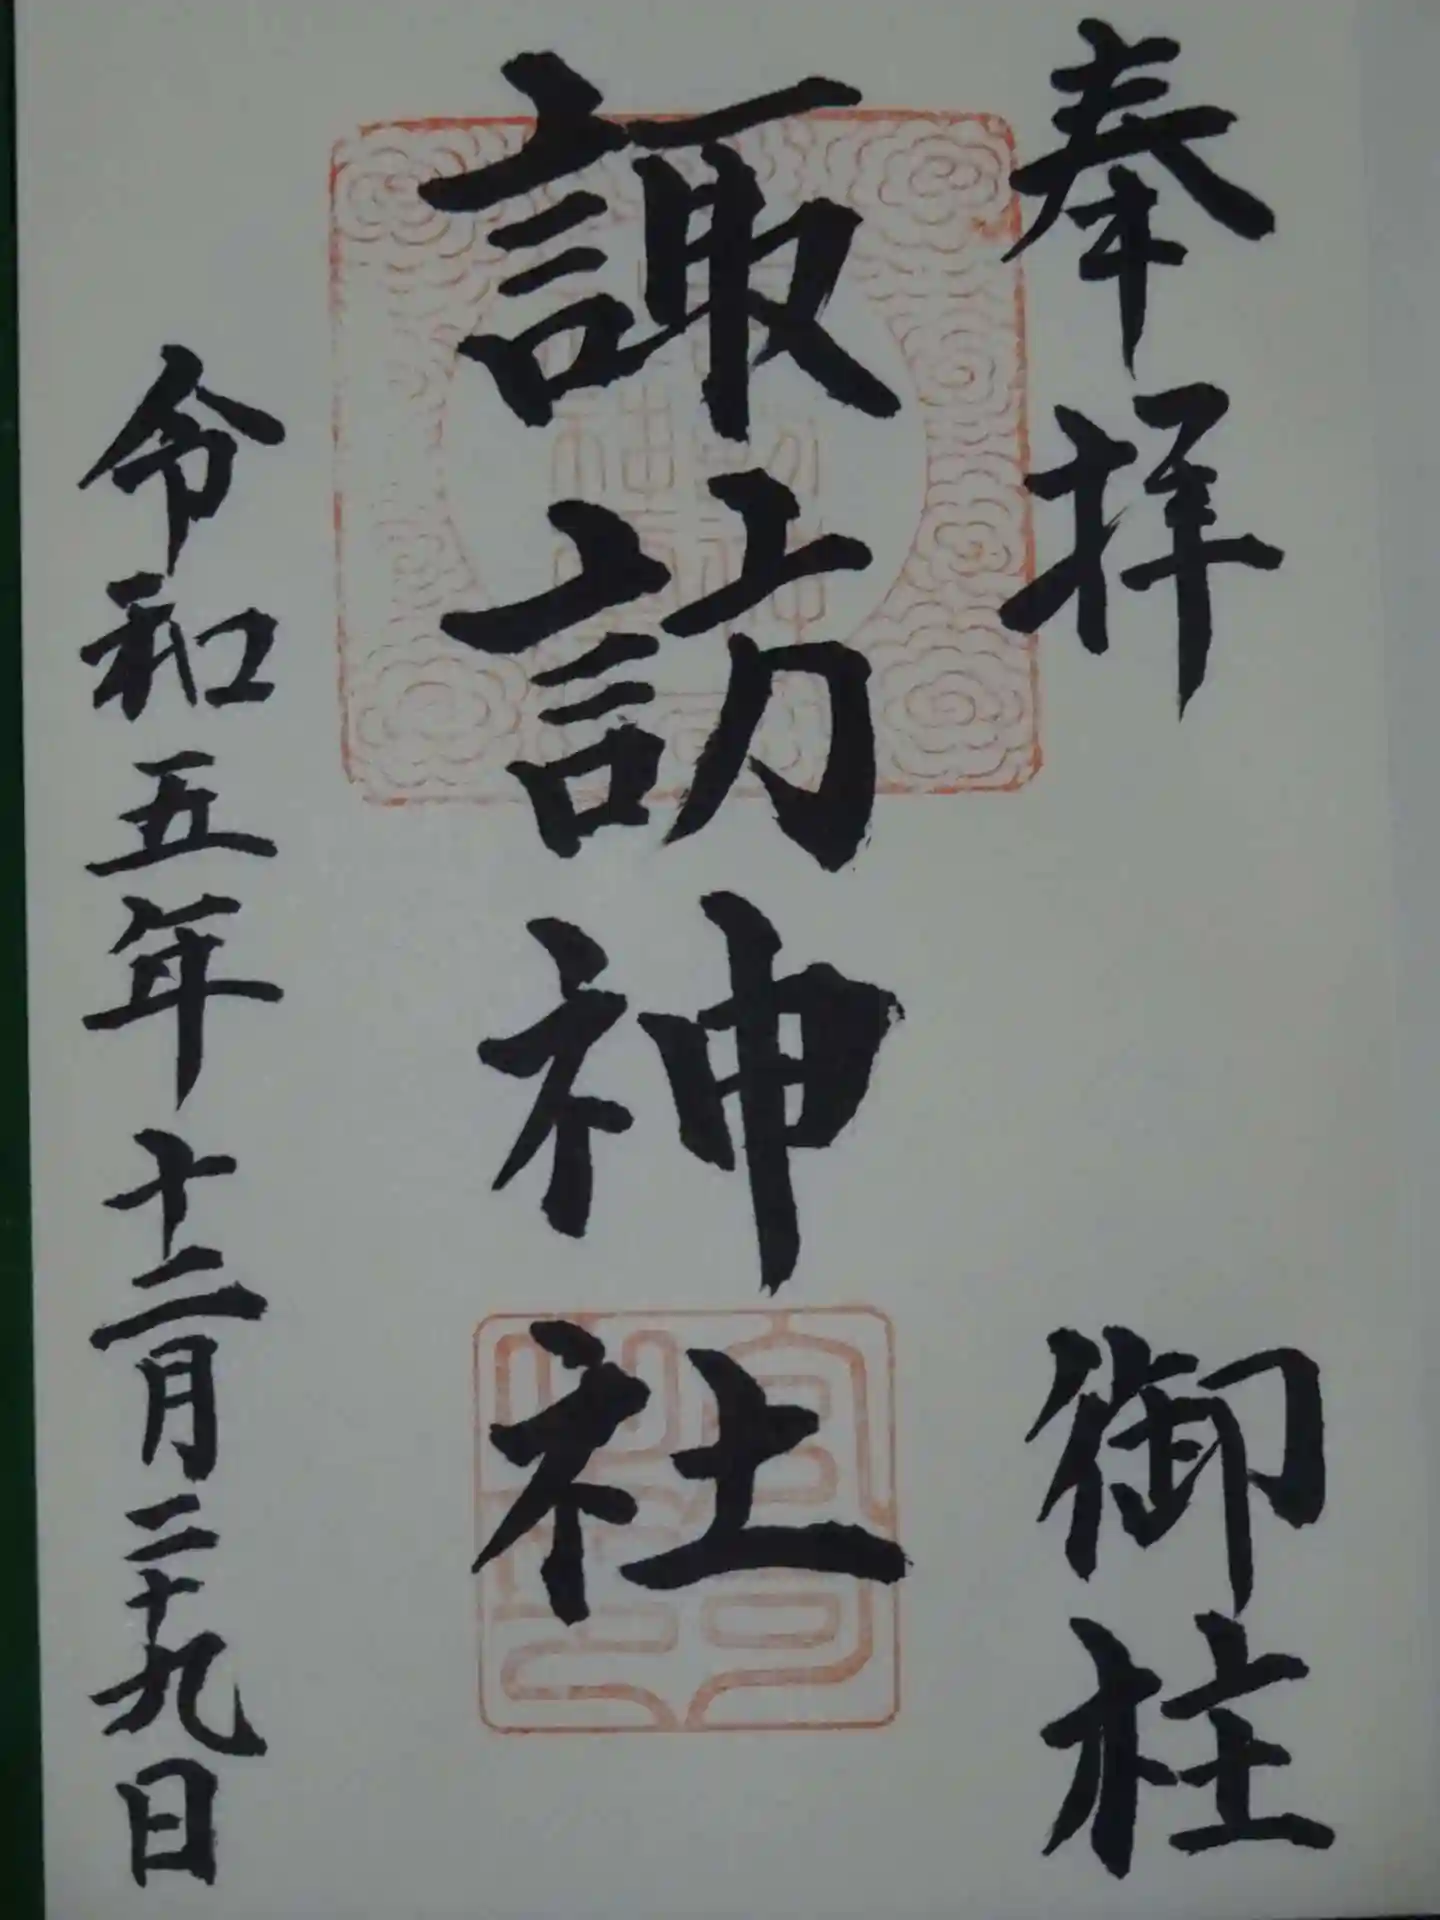 奉拝 御柱
諏訪神社
令和五年十二月二十九日